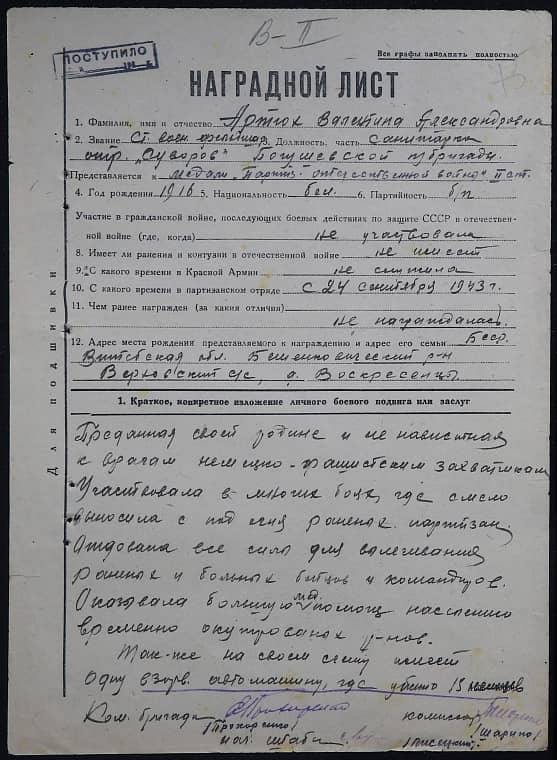 В-II
ПОСТУПИЛО
Все графы заполнять полностью.
НАГРАДНОЙ ЛИСТ
1. Фамилия, имя и отчество Артюх Валентина Александровна
2. Звание Ст. воен. фельдшер 3. Должность, часть санитарка
отр. „Суворов" Богушевской п/бригады.
Представляется к медали „Партиз. отечественной войны" II ст.
4. Год рождения 1916 5. Национальность бел. 6. Партийность б/п
Участие в гражданской войне, последующих боевых действиях по защите СССР и отечествен-
ной войне (где, когда) не участвовала
8. Имеет ли ранения и контузии в отечественной войне не имеет
9. С какого времени в Красной Армии не служила
10. С какого времени в партизанском отряде с 24 сентября 1943 г.
11. Чем ранее награжден (за какия отличия)
не награждалась.
12. Адрес места рождения представляемого к награждению и адрес его семьи БССР
Витебская обл. Бешенковический р-н
Верховский с/с, д. Воскресенцы.
Для подшивки
1. Краткое, конкретное изложение личного боевого подвига или заслуг
Преданная своей родине и не навистная
к врагам немецко-фашистским захватчикам
Участвовала в многих боях, где смело
выносила с под огня раненых партизан.
Отдовала все силы для
раненых и больных бойцов и командиров.
Оказовала большую мед. помощ населению
временно р-нов.
Так-же на своем счету имеет
одну взорв. автомашину, где убито 15
Ком. бригады комиссар
/Прохоренко/ /Шарипо/
нач. штаба